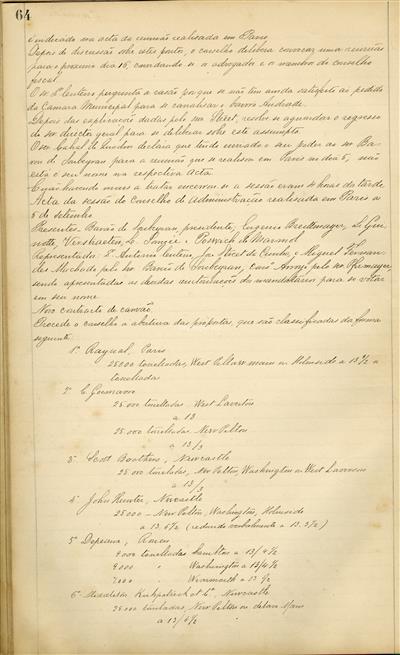 64
é indicado na acta da reunião realisada em Paris.
Depois de discussão sobre estes pontos, o conselho delibera convocar uma reunião
para o proximo dia 16, convidando-se o advogado e o membro do conselho
fiscal.
O sr. Centeno pergunta a razão por que se não tem ainda satisfeito ao pedido
da Camara Municipal para se canalisar o bairro Andrade.
Depois das explicações dadas pelo snr. Street, resolve-se aguardar o regresso
do snr. director geral para se deliberar sobre este assumpto.
O snr. declara que tendo enviado o seu poder ao snr. Ba-
rão de Soubeyran para a reunião que se realisou em Paris no dia 5, não
está o seu nome na respectiva acta.
E não havendo mais a tratar encerrou-se a sessão eram horas da tarde.
Acta da sessão do Conselho de Administração realisada em Paris a
5 de setembro
Presentes: Barão de Soubeyran, presidente, Eugenio Breittmayer,
Verstraeten, e
Representados: Antonio Centeno, Street da Cunha, e Miguel Fernan-
des Machado pelo snr. Barão de Soubeyran, pelo snr.
sendo apresentadas as devidas auctorisações do mandatarios para se votar
em seu nome.
Novo contracto de carvão.
Procede o conselho a abertura das propostas, que são classificadas da forma
seguinte:
1º Raynal, Paris
25000 toneladas, West Pelton main ou Holmside a 13 ½ a
tonelada
2º C. Germano
25.000 toneladas West Leverton
a 13
25.000 toneladas New Pelton
a 13/3
3º Scott Brothers, Newcastle
25.000 toneladas, New Pelton, Washington ou West Leversons
a 13/3
4º John Hunter, Newcastle
25000 - New Pelton, Washington, Holmside
a 13.5½ (reduzido verbalmente a 13.3½)
5º Depeaux, Rouen
9000 toneladas Lambton a 13/4½
9000 " Washington a 13/4½
7000 " Wearmouth a 13 ½
6º Middleton Kirkpatrick et Cª, Newcastle
25000 toneladas, New Pelton ou
a 13/6½